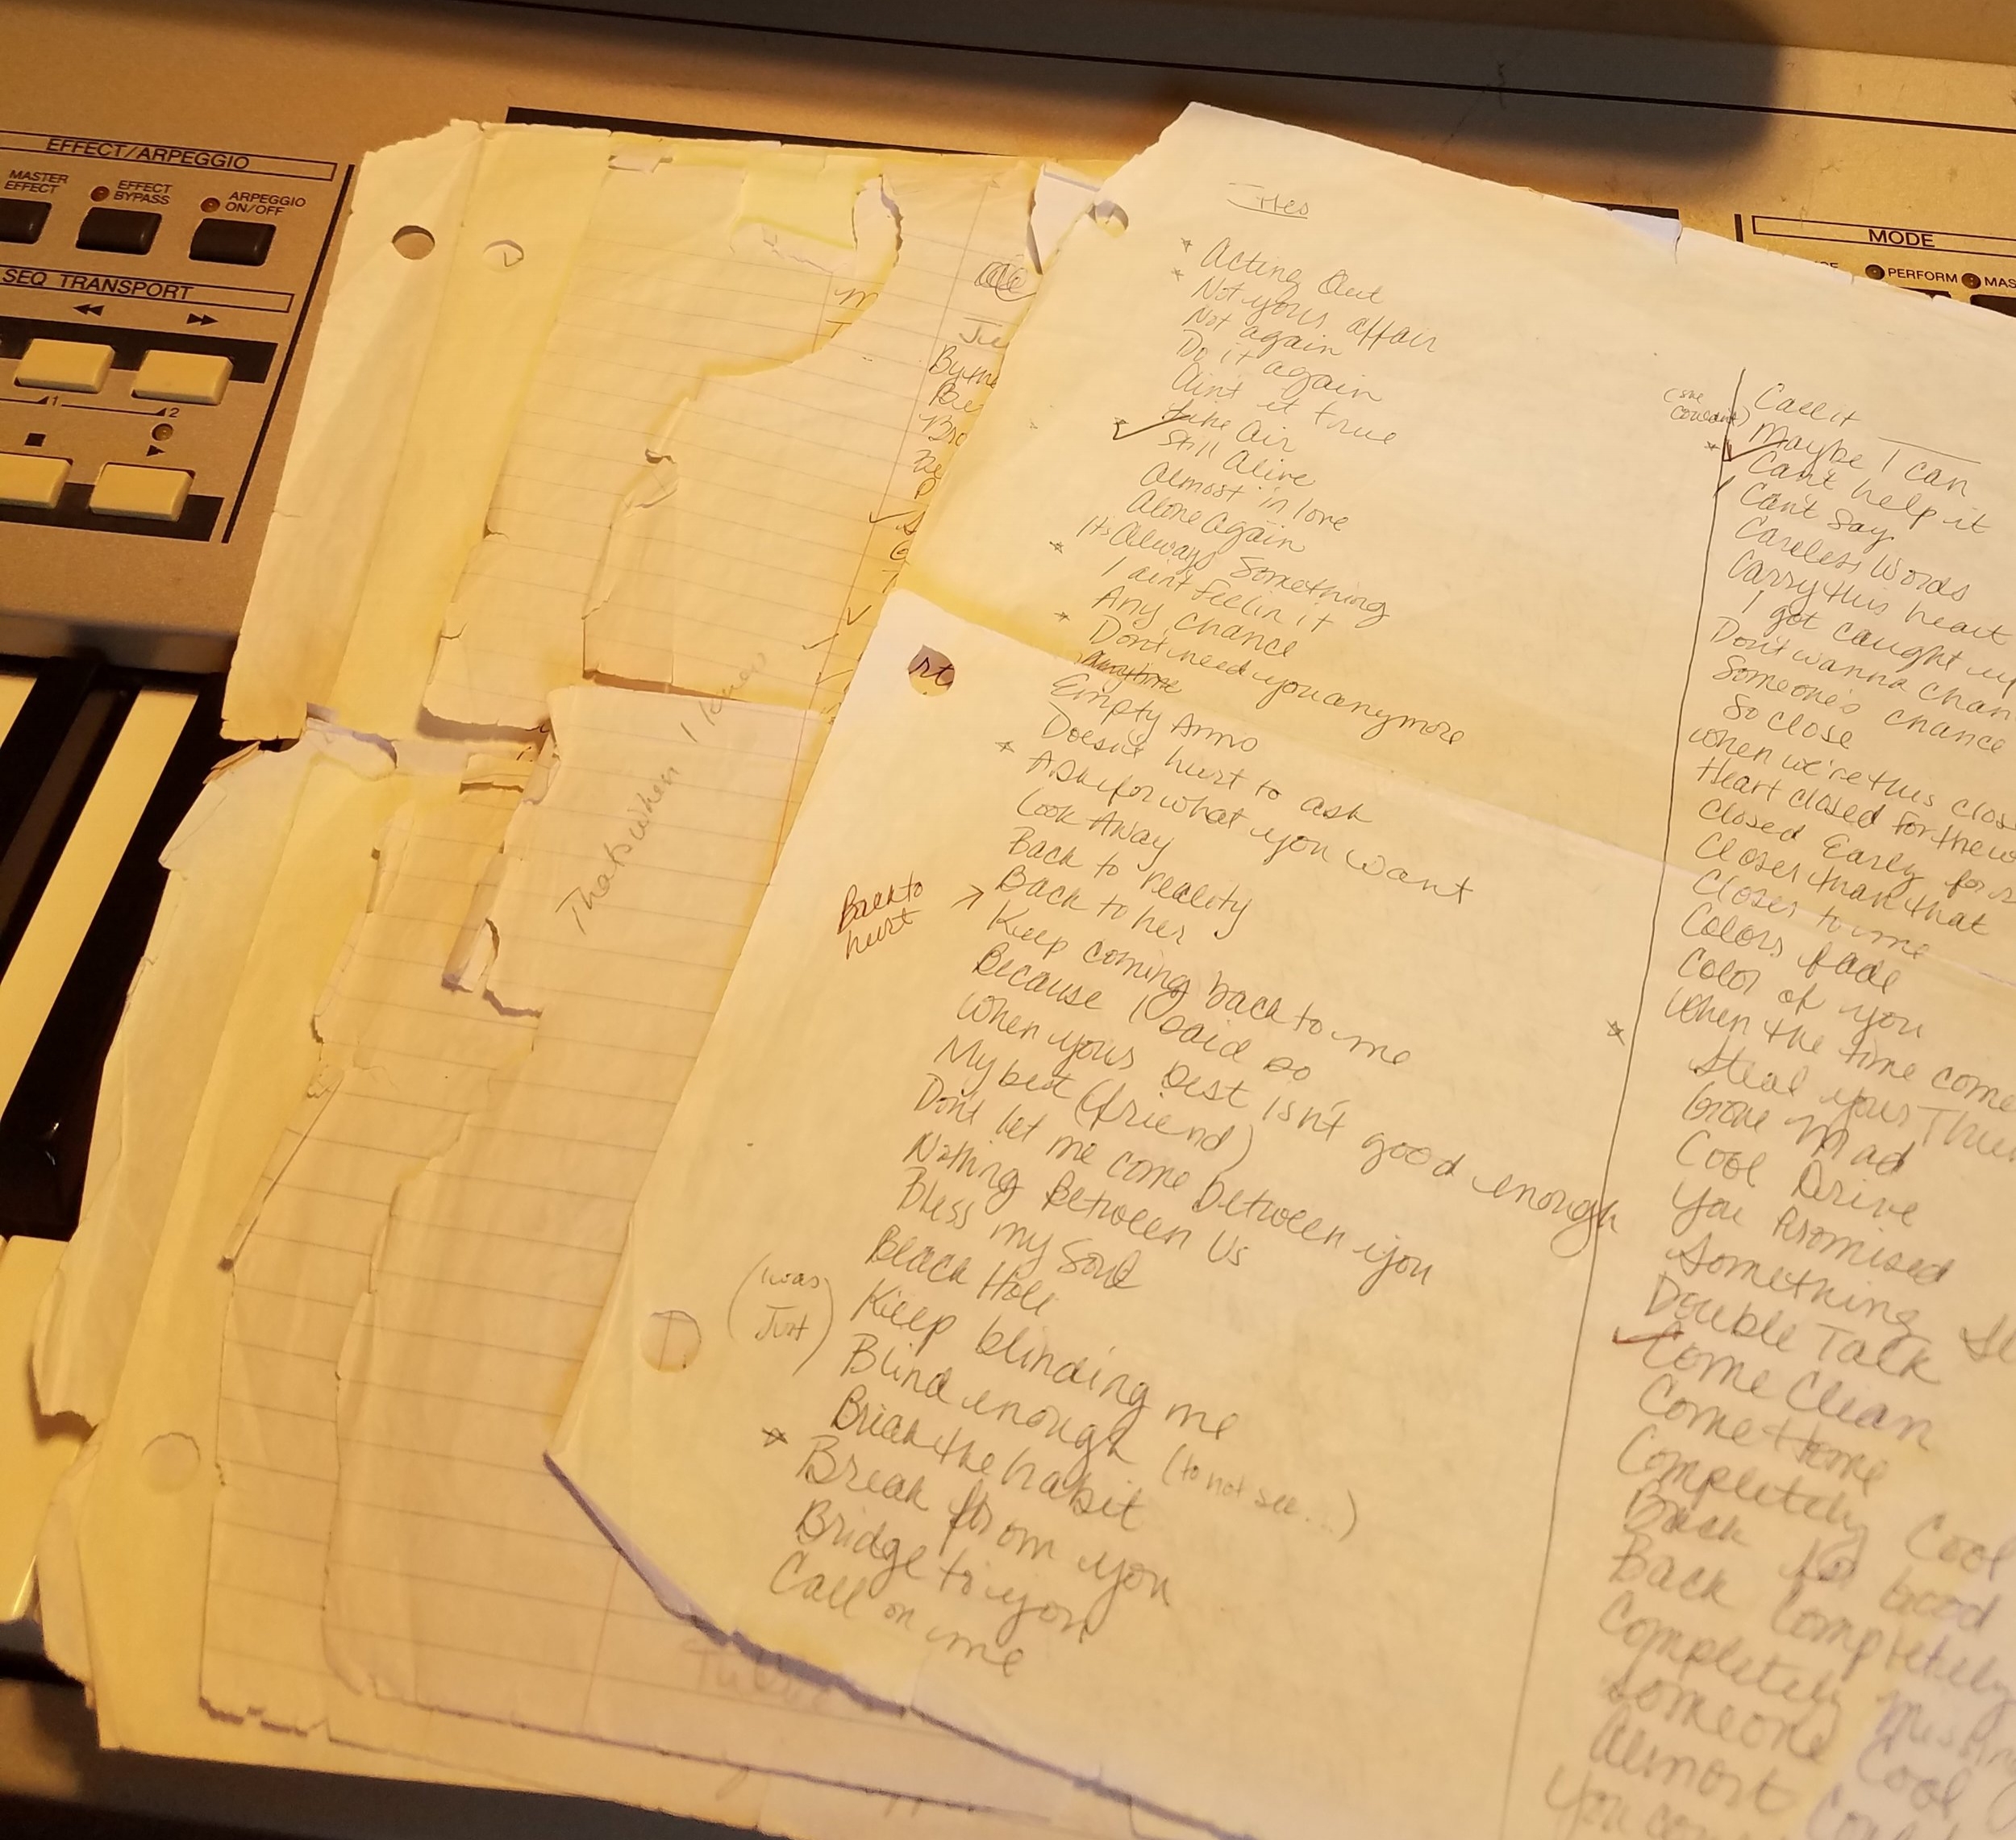 EFFECT/ARPEGGIO
MASTER EFFECT
EFFECT BYPASS
ARPEGGIO ON/OFF
SEQ TRANSPORT
1
2
MODE
PERFORM
MAS
By the
Bro
Thats when I knew
rt
Titles
* Acting Out
* Not your affair
Not again
Do it again
Aint it true
Take Air
Still Alive
Almost in love
Alone Again
Its Always Something
* I ain't feelin it
Any Chance
* Don't need you anymore
Anytime
Empty Arms
Doesnt hurt to ask
* Ask for what you want
Look Away
Back to reality
Back to her
Back to hurt
Keep coming back to me
Because I said so
When your best isn't good enough
My best (friend)
Don't let me come between you
Nothing Between Us
Bless my Soul
Black Hole
(was Just) Keep blinding me
Blind enough (to not see...)
Break the habit
* Break from you
Bridge to you
Call on me
Call it
(she couldn't) Maybe I can
* Can't help it
Can't Say
Careless Words
Carry this heart
I got caught up
Don't wanna chan
Someone's chance
So close
When we're this clos
Heart closed for the w
Closed Early for
Closer than that
Closer to me
Colors fade
Color of you
When the time come
* Steal your Thu
Gone Mad
Cool Drive
You Promised
Something
Double Talk
Come Clean
Come Home
Completely Cool
Back to Good
Back Completely
Completely Missing
Someone Cool
Almost
You